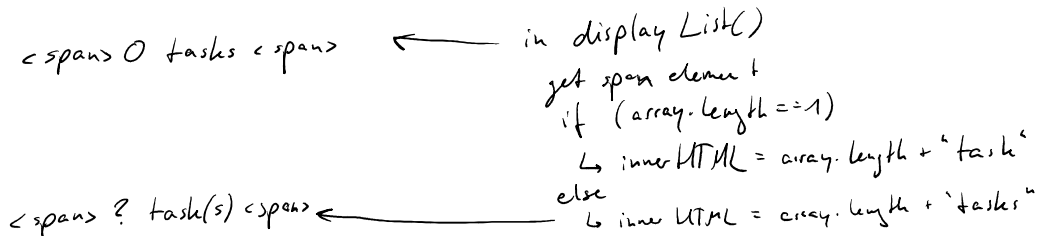 <span> 0 tasks <span>
in displayList()
get span element
if (array.length == 1)
↳ innerHTML = array.length + "task"
else
↳ innerHTML = array.length + "tasks"
<span> ? task(s) <span>